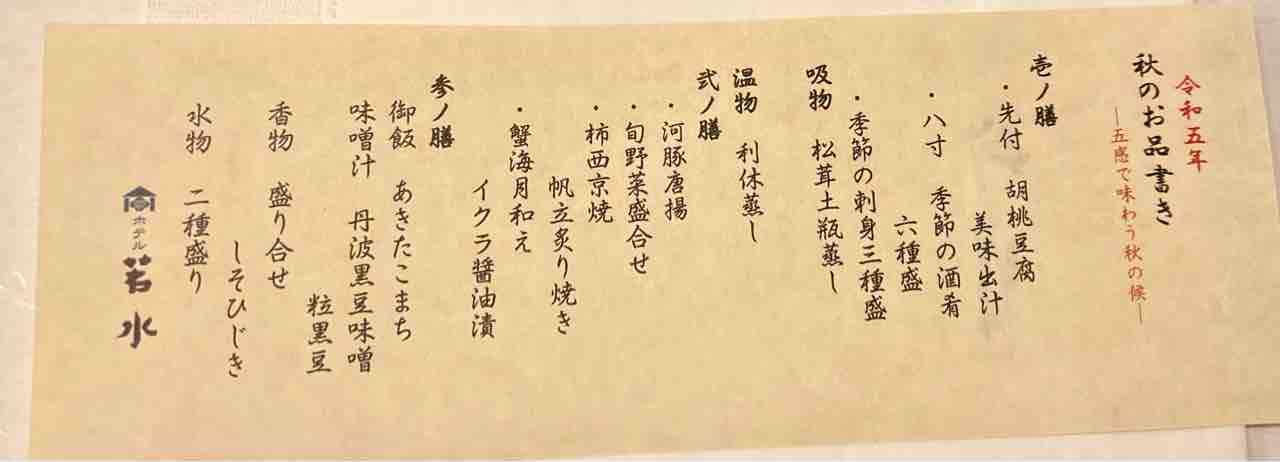 令和五年
秋のお品書き
―五感で味わう秋の候―
壱ノ膳
・先付　胡桃豆腐
美味出汁
・八寸　季節の酒肴
六種盛
・季節の刺身三種盛
吸物　松茸土瓶蒸し
温物　利休蒸し
弐ノ膳
・河豚唐揚
・旬野菜盛合せ
・柿西京焼
帆立炙り焼き
・蟹海月和え
イクラ醤油漬
参ノ膳
御飯　あきたこまち
味噌汁　丹波黒豆味噌
粒黒豆
香物　盛り合せ
しそひじき
水物　二種盛り
ホテル若水